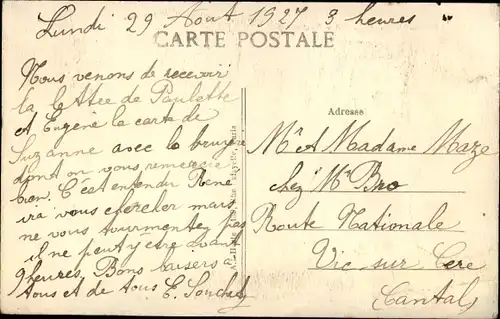 Lundi 29 Aout 1927 3 heures
CARTE POSTALE
Nous venons de recevoir
la lettre de Paulette
et Eugène la carte de
Suzanne avec la bruyère
dont on vous remercie
bien. C'est entendu René
ira vous chercher mais
ne vous tourmentez pas
il ne peut y etre avant
9 heures, Bons baisers à
tous et de tous E.
Adresse
Mr et Madame Maze
chez Mr Bro
Route Nationale
Vic sur Cere
Cantal